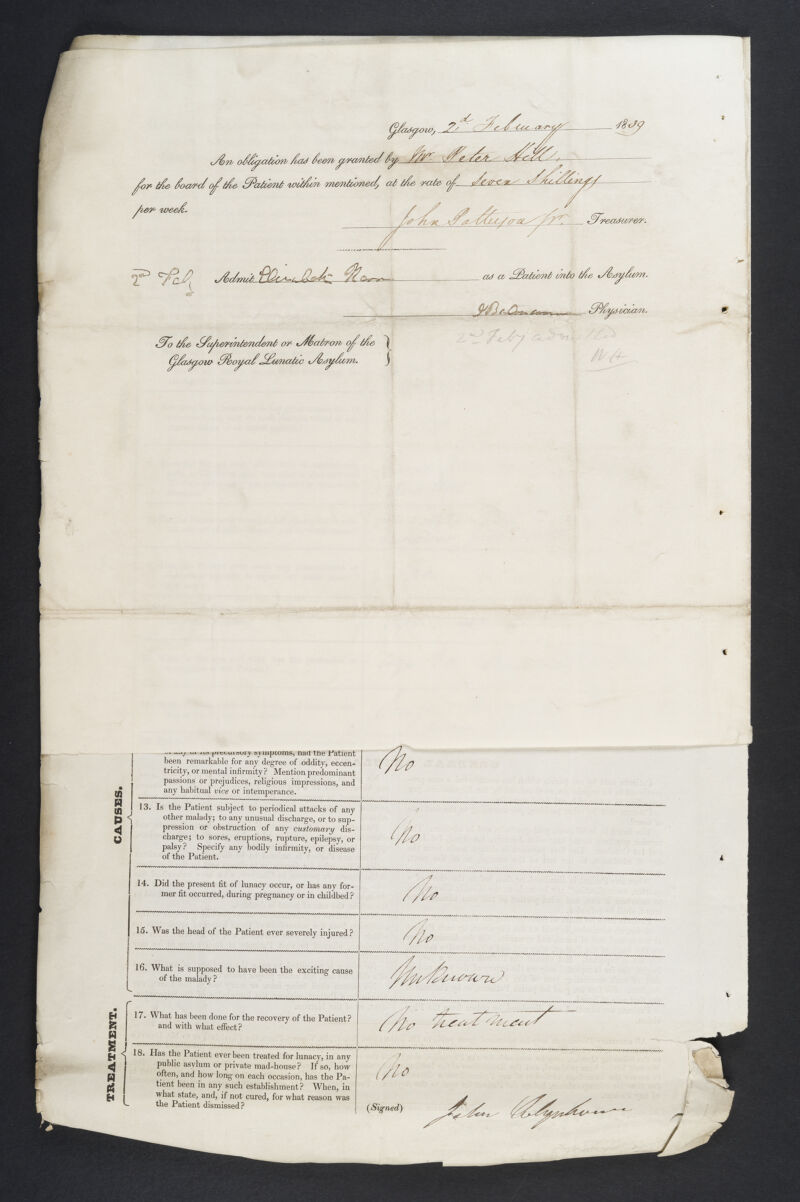 Glasgow, 2d February 1839
An obligation has been granted by Mr Peter Hill.
for the board of the Patient within mentioned, at the rate of Seven Shillings
per week.
John Patterson jr. Treasurer.
2nd Feby Admit Elizabeth as a Patient into the Asylum.
Physician.
2nd Feby admitted
To the Superintendent or Matron of the
Glasgow Royal Lunatic Asylum.
WH
of any of its precursory symptoms, had the Patient
been remarkable for any degree of oddity, eccen-
tricity, or mental infirmity? Mention predominant
passions or prejudices, religious impressions, and
any habitual vice or intemperance.
No
CAUSES.
13. Is the Patient subject to periodical attacks of any
other malady; to any unusual discharge, or to sup-
pression or obstruction of any customary dis-
charge; to sores, eruptions, rupture, epilepsy, or
palsy? Specify any bodily infirmity, or disease
of the Patient.
No
14. Did the present fit of lunacy occur, or has any for-
mer fit occurred, during pregnancy or in childbed?
No
15. Was the head of the Patient ever severely injured?
No
16. What is supposed to have been the exciting cause
of the malady?
Unknown
TREATMENT.
17. What has been done for the recovery of the Patient?
and with what effect?
No treatment
18. Has the Patient ever been treated for lunacy, in any
public asylum or private mad-house? If so, how
often, and how long on each occasion, has the Pa-
tient been in any such establishment? When, in
what state, and, if not cured, for what reason was
the Patient dismissed?
No
(Signed) John